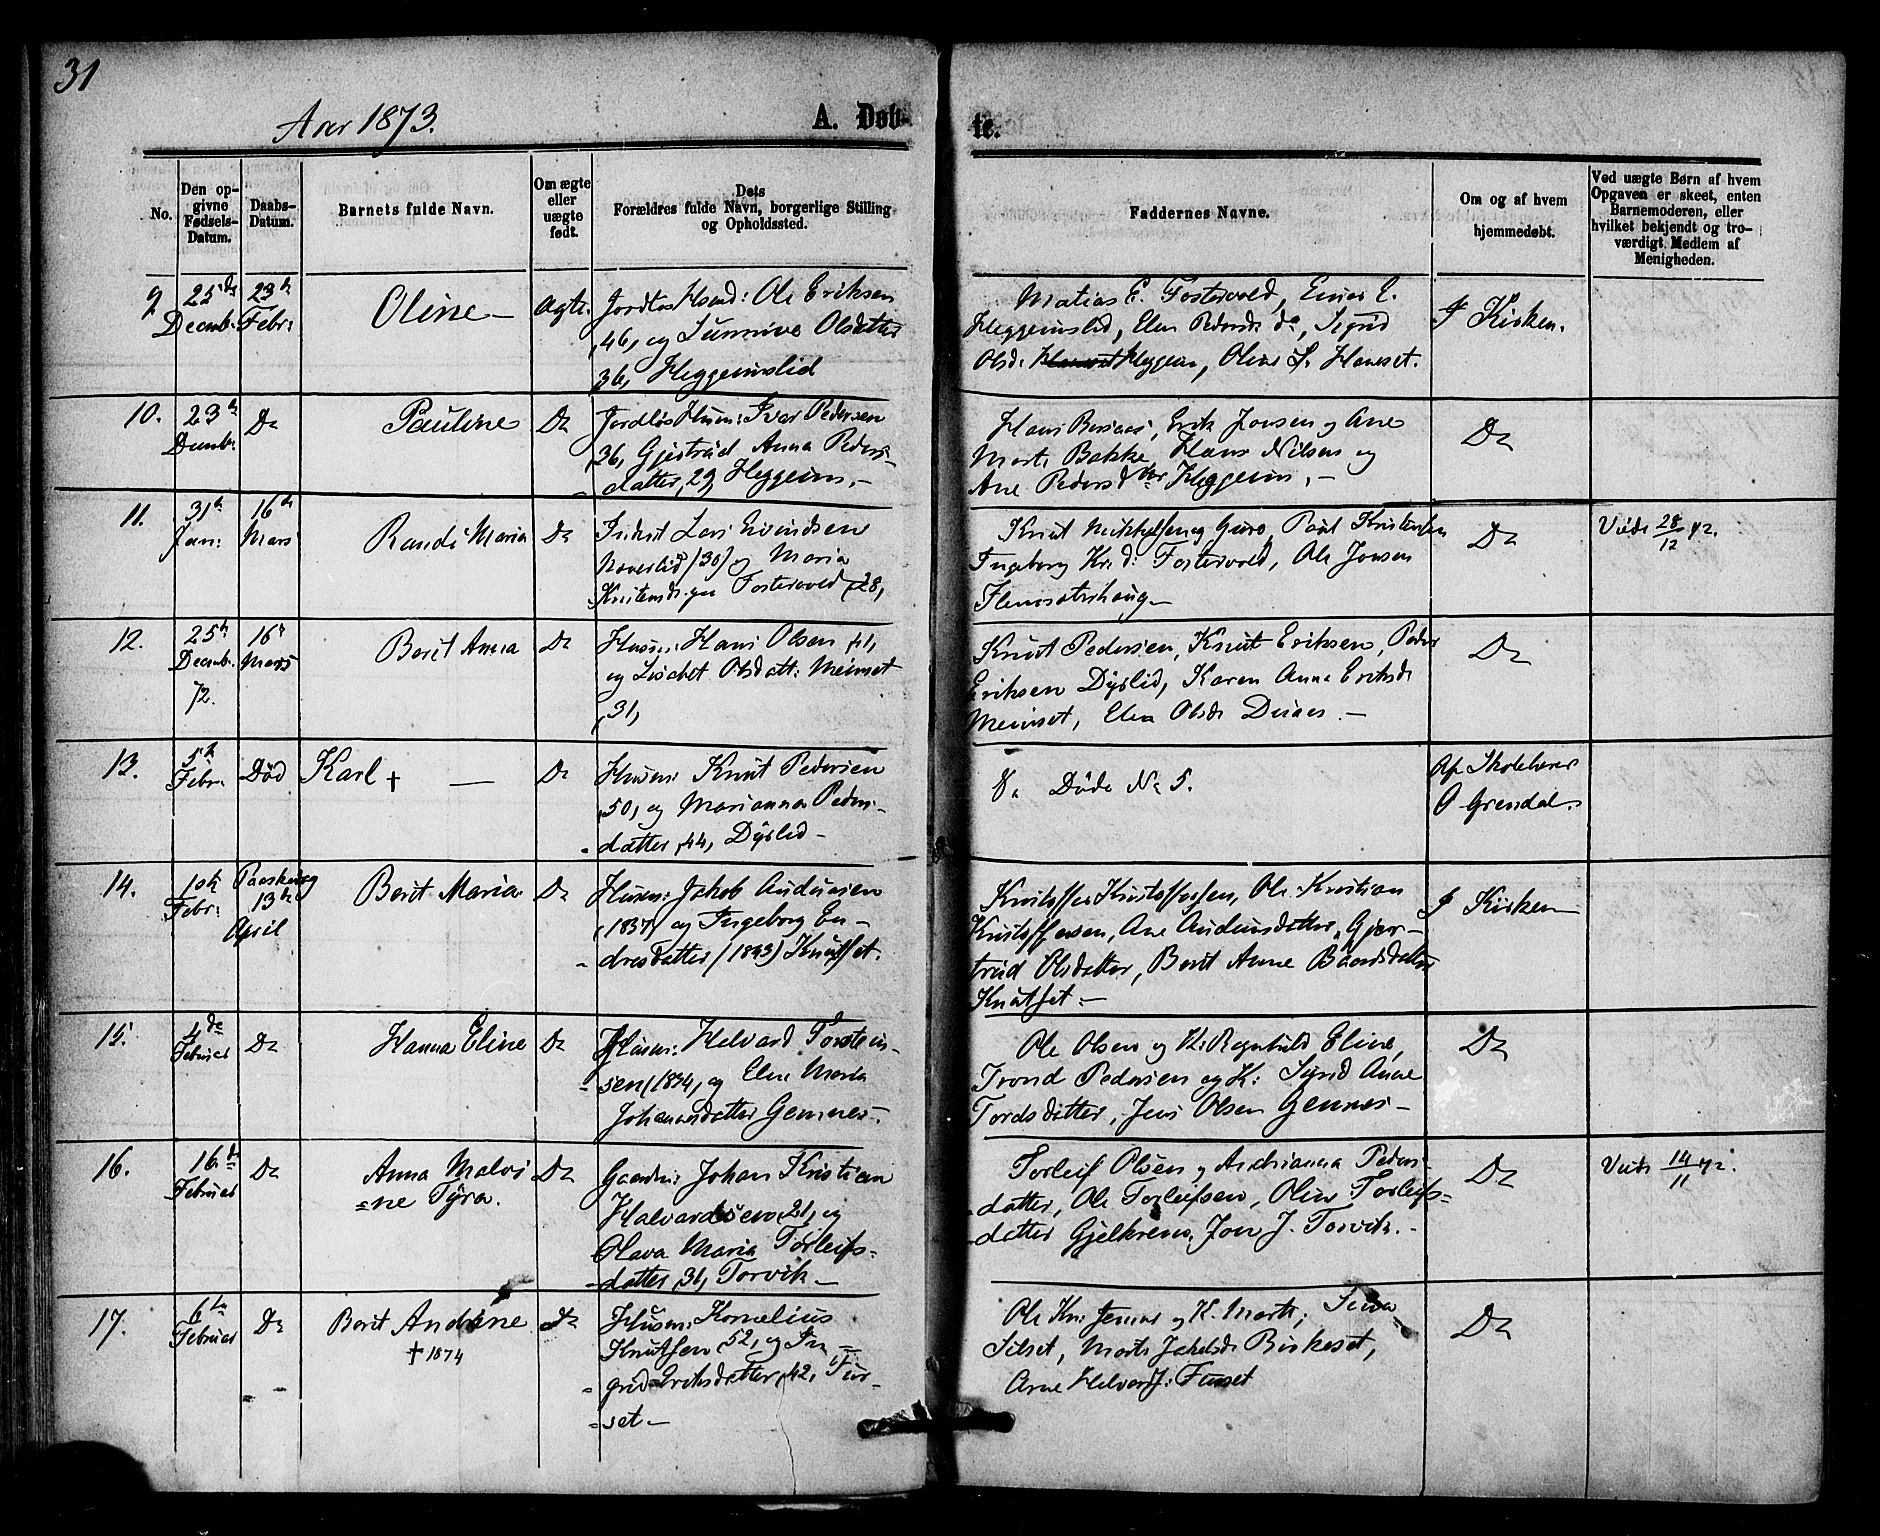 31
Aar 1873.
A. Døb-
te.
No.
Den op-
givne
Fødsels-
Datum.
Daabs-
Datum.
Barnets fulde Navn.
Om ægte
eller
uægte
født.
Dets
Forældres fulde Navn, borgerlige Stilling
og Opholdssted.
Faddernes Navne.
Om og af hvem
hjemmedøbt.
Ved uægte Børn af hvem
Opgaven er skeet, enten
Barnemoderen, eller
hvilket bekjendt og tro-
værdigt Medlem af
Menigheden.
9
25de
Decemb.
23de
Febr:
Oline —
Ægte.
Ole Eriksen
46, og Sunniva Olsdatter
36, Heggeimslid
Matias E. Fostervold, Einar E.
Heggeimslid, Elen Pedersd. do, Sigrid
Olsd. Heggem, Oline L. Haneset.
I Kirken.
10.
23de
Do
Pauline
Do
Jordløs Husm: Ivar Pedersen
36, Gjestrud Anna Peders-
datter, 29, Heggeim. —
Erik Jonsen og Ane
Marta Bakke, Hans Nilsen og
Ane Heggeim. —
Do
11.
31te
Jan:
16de
Mars
Randi Maria
Do
Inderst Lars Eivindsen
(30) og Maria
Fostervold, 28,
Knut Mikkelsen og Guro, Paul Kristensen
Ingeborg Kr.d: Fostervold, Ole Jonsen
Do
Viede 28/12 72.
12.
25de
Decemb.
72.
16de
Mars
Berit Anna
Do
Husm: Hans Olsen, 41,
og Lisabet Olsdatt: Meinset
, 31,
Knut Pedersen, Knut Eriksen, Peder
Eriksen Dyslid, Karen Anna Eriksd.
Meinset, Elen Olsd.
Do
13.
5te
Febr.
Død
Karl † —
Do
Husm: Knut Pedersen
, 50, og Marianna Peders-
datter, 44, Dyslid —
Døde No 5.
Af Skolelærer
O Grendal.
14.
1ste
Febr:
13de
April
Berit Maria
Do
Husm: Jakob Audunsen
(1837) og Ingeborg En-
dresdatter (1843) Knutset.
Kristoffer Kristoffersen, Ole Kristian
Kristoffersen, Ane Audunsdatter, Gjer-
trud Olsdatter, Berit Anne Baardsdatter
Knutset —
I Kirken —
15.
4de
Februar
Do
Hanna Eline
Do
Husm: Helvard Torstein-
sen, og Elen Maria
Johannesdatter Gemnes —
Ole Olsen og K. Ragnhild Eline,
Trond Pedersen og K: Sigrid Anne
Tordsdatter, Jens Olsen Gemnes —
Do
16.
16de
Februar
Do
Anna Malvi
=ne Tyra.
Do
Gaardm: Johan Kristian
Halvardsen, 21, og
Olava Maria Torleifs-
datter, 31, Torvik —
Torleif Olsen og Andrianna Peders-
datter, Ole Torleifsen, Oline Torleifs-
datter Gjelkrem, Jon J. Torvik. —
Do
Viede 14/11 72.
17.
6te
Februar
Do
Berit Andrine
† 1874
Do
Husm: Kornelius
Knutsen, 52, og In-
grid Eriksdatter, 42,
set —
Ole Kn: og K. Marta,
Silset, Marta Jakobsd. Birkeset,
Arne
Do